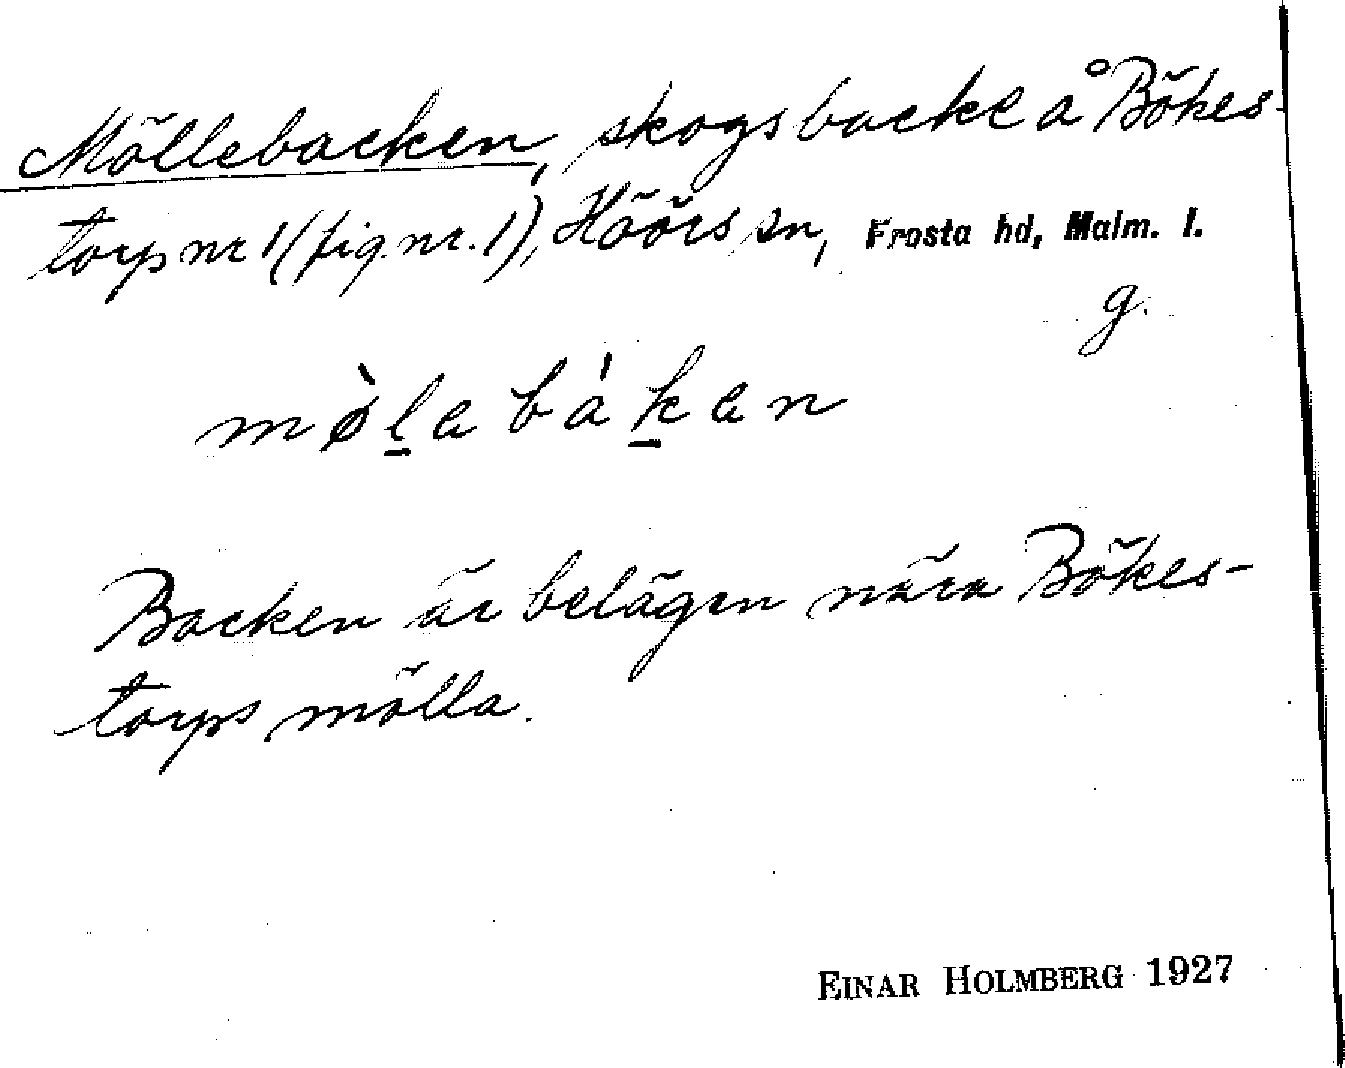 Möllebacken, skogsbacke å Bökes-
torp nr 1 (fig. nr. 1), Höörs sn, Frosta hd, Malm. l.
g.
mø̀l̲ebák̲en
Backen är belägen nära Bökes-
torps mölla.
EINAR HOLMBERG 1927